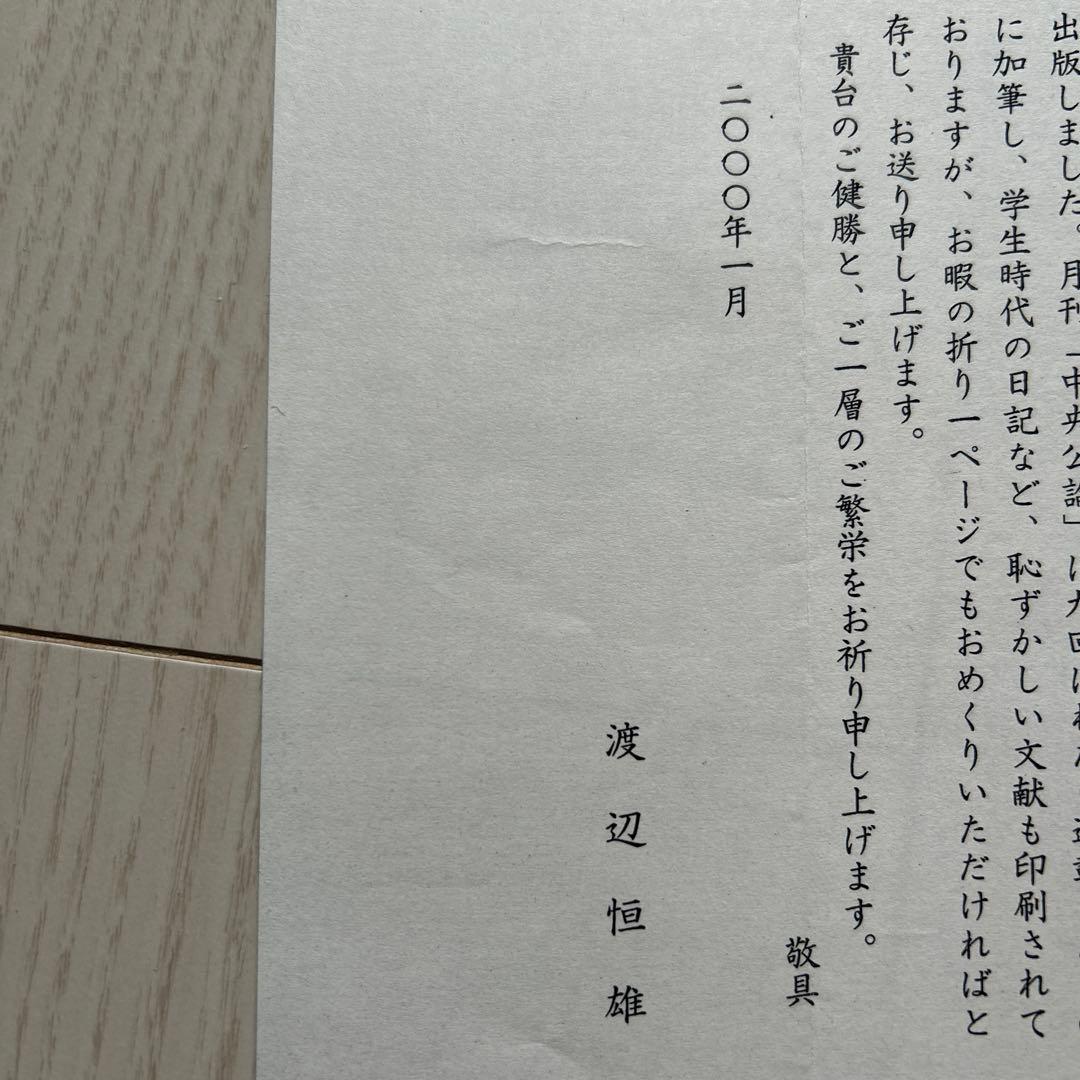 出版しました。月刊「中央公論」に九回
に加筆し、学生時代の日記など、恥ずかしい文献も印刷されて
おりますが、お暇の折り一ページでもおめくりいただければと
存じ、お送り申し上げます。
貴台のご健勝と、ご一層のご繁栄をお祈り申し上げます。
敬具
二〇〇〇年一月
渡辺恒雄